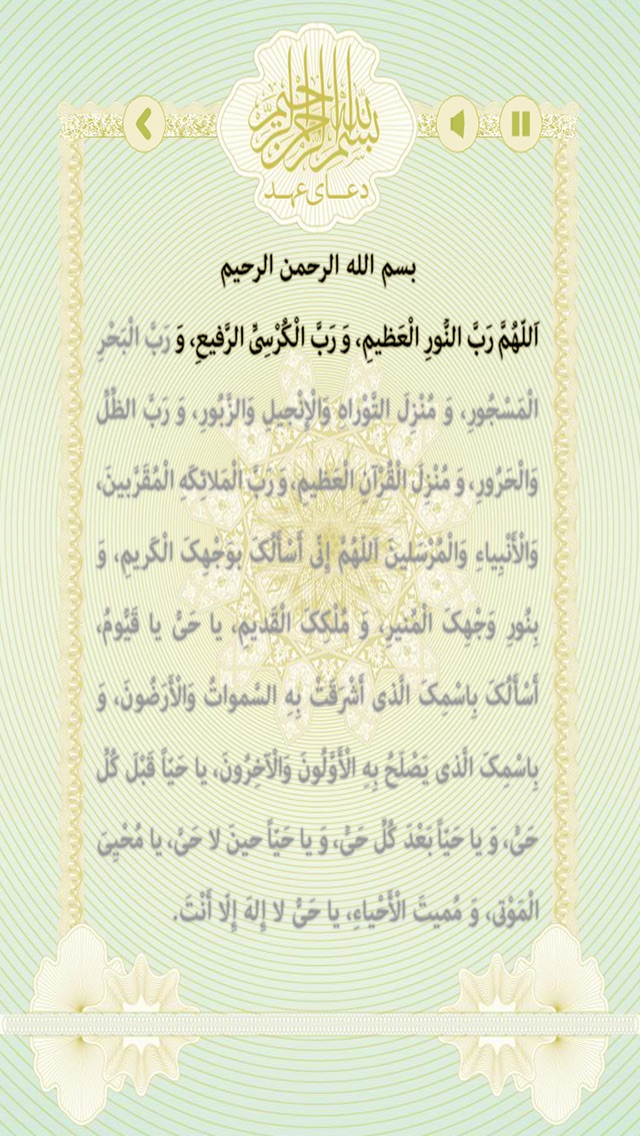 بسم الله الرحمن الرحیم
دعـای عهـد
بسم الله الرحمن الرحیم
اَللّهُمَّ رَبَّ النُّورِ الْعَظیمِ، وَ رَبَّ الْكُرْسِیِّ الرَّفیعِ، وَ رَبَّ الْبَحْرِ
الْمَسْجُورِ، وَ مُنْزِلَ التَّوْراهِ وَالْإِنْجیلِ وَالزَّبُورِ، وَ رَبَّ الظِّلِّ
وَالْحَرُورِ، وَ مُنْزِلَ الْقُرْآنِ الْعَظیمِ، وَ رَبَّ الْمَلائِکَهِ الْمُقَرَّبینَ،
وَالْأَنْبِیاءِ وَالْمُرْسَلینَ اَللّهُمَّ إِنّی أَسْأَلُکَ بِوَجْهِکَ الْکَریمِ، وَ
بِنُورِ وَجْهِکَ الْمُنیرِ، وَ مُلْکِکَ الْقَدیمِ، یا حَیُّ یا قَیُّومُ،
أَسْأَلُکَ بِاسْمِکَ الَّذی أَشْرَقَتْ بِهِ السَّمواتُ وَالْأَرَضُونَ، وَ
بِاسْمِکَ الَّذی یَصْلَحُ بِهِ الْأَوَّلُونَ وَالْآخِرُونَ، یا حَیّاً قَبْلَ کُلِّ
حَیٍّ، وَ یا حَیّاً بَعْدَ کُلِّ حَیٍّ، وَ یا حَیّاً حینَ لا حَیَّ، یا مُحْیِیَ
الْمَوْتی، وَ مُمیتَ الْأَحْیاءِ، یا حَیُّ لا إِلهَ إِلّا أَنْتَ.